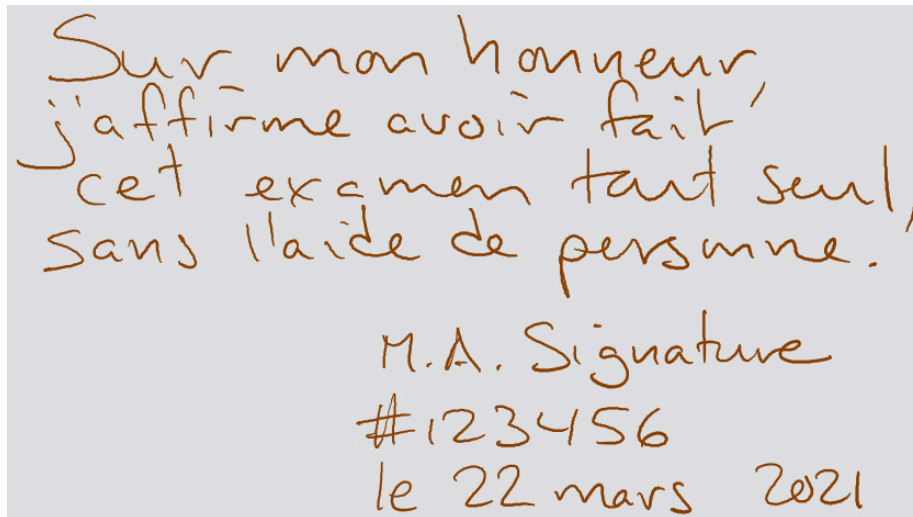 Sur mon honneur,
j'affirme avoir fait
cet examen tout seul,
sans l'aide de personne.
M.A. Signature
#123456
le 22 mars 2021